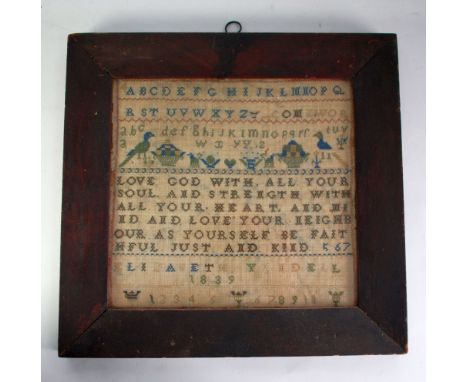 ABCDEFGHIJKLMNOPQ
RSTUVWXYZ
abc defghijklmnopqrs tuv
LOVE GOD WITH ALL YOUR
SOUL AND STRENGTH WITH
ALL YOUR HEART AND MI
ND AND LOVE YOUR NEIGHB
OUR AS YOURSELF BE FAIT
HFUL JUST AND KIND 567
1839